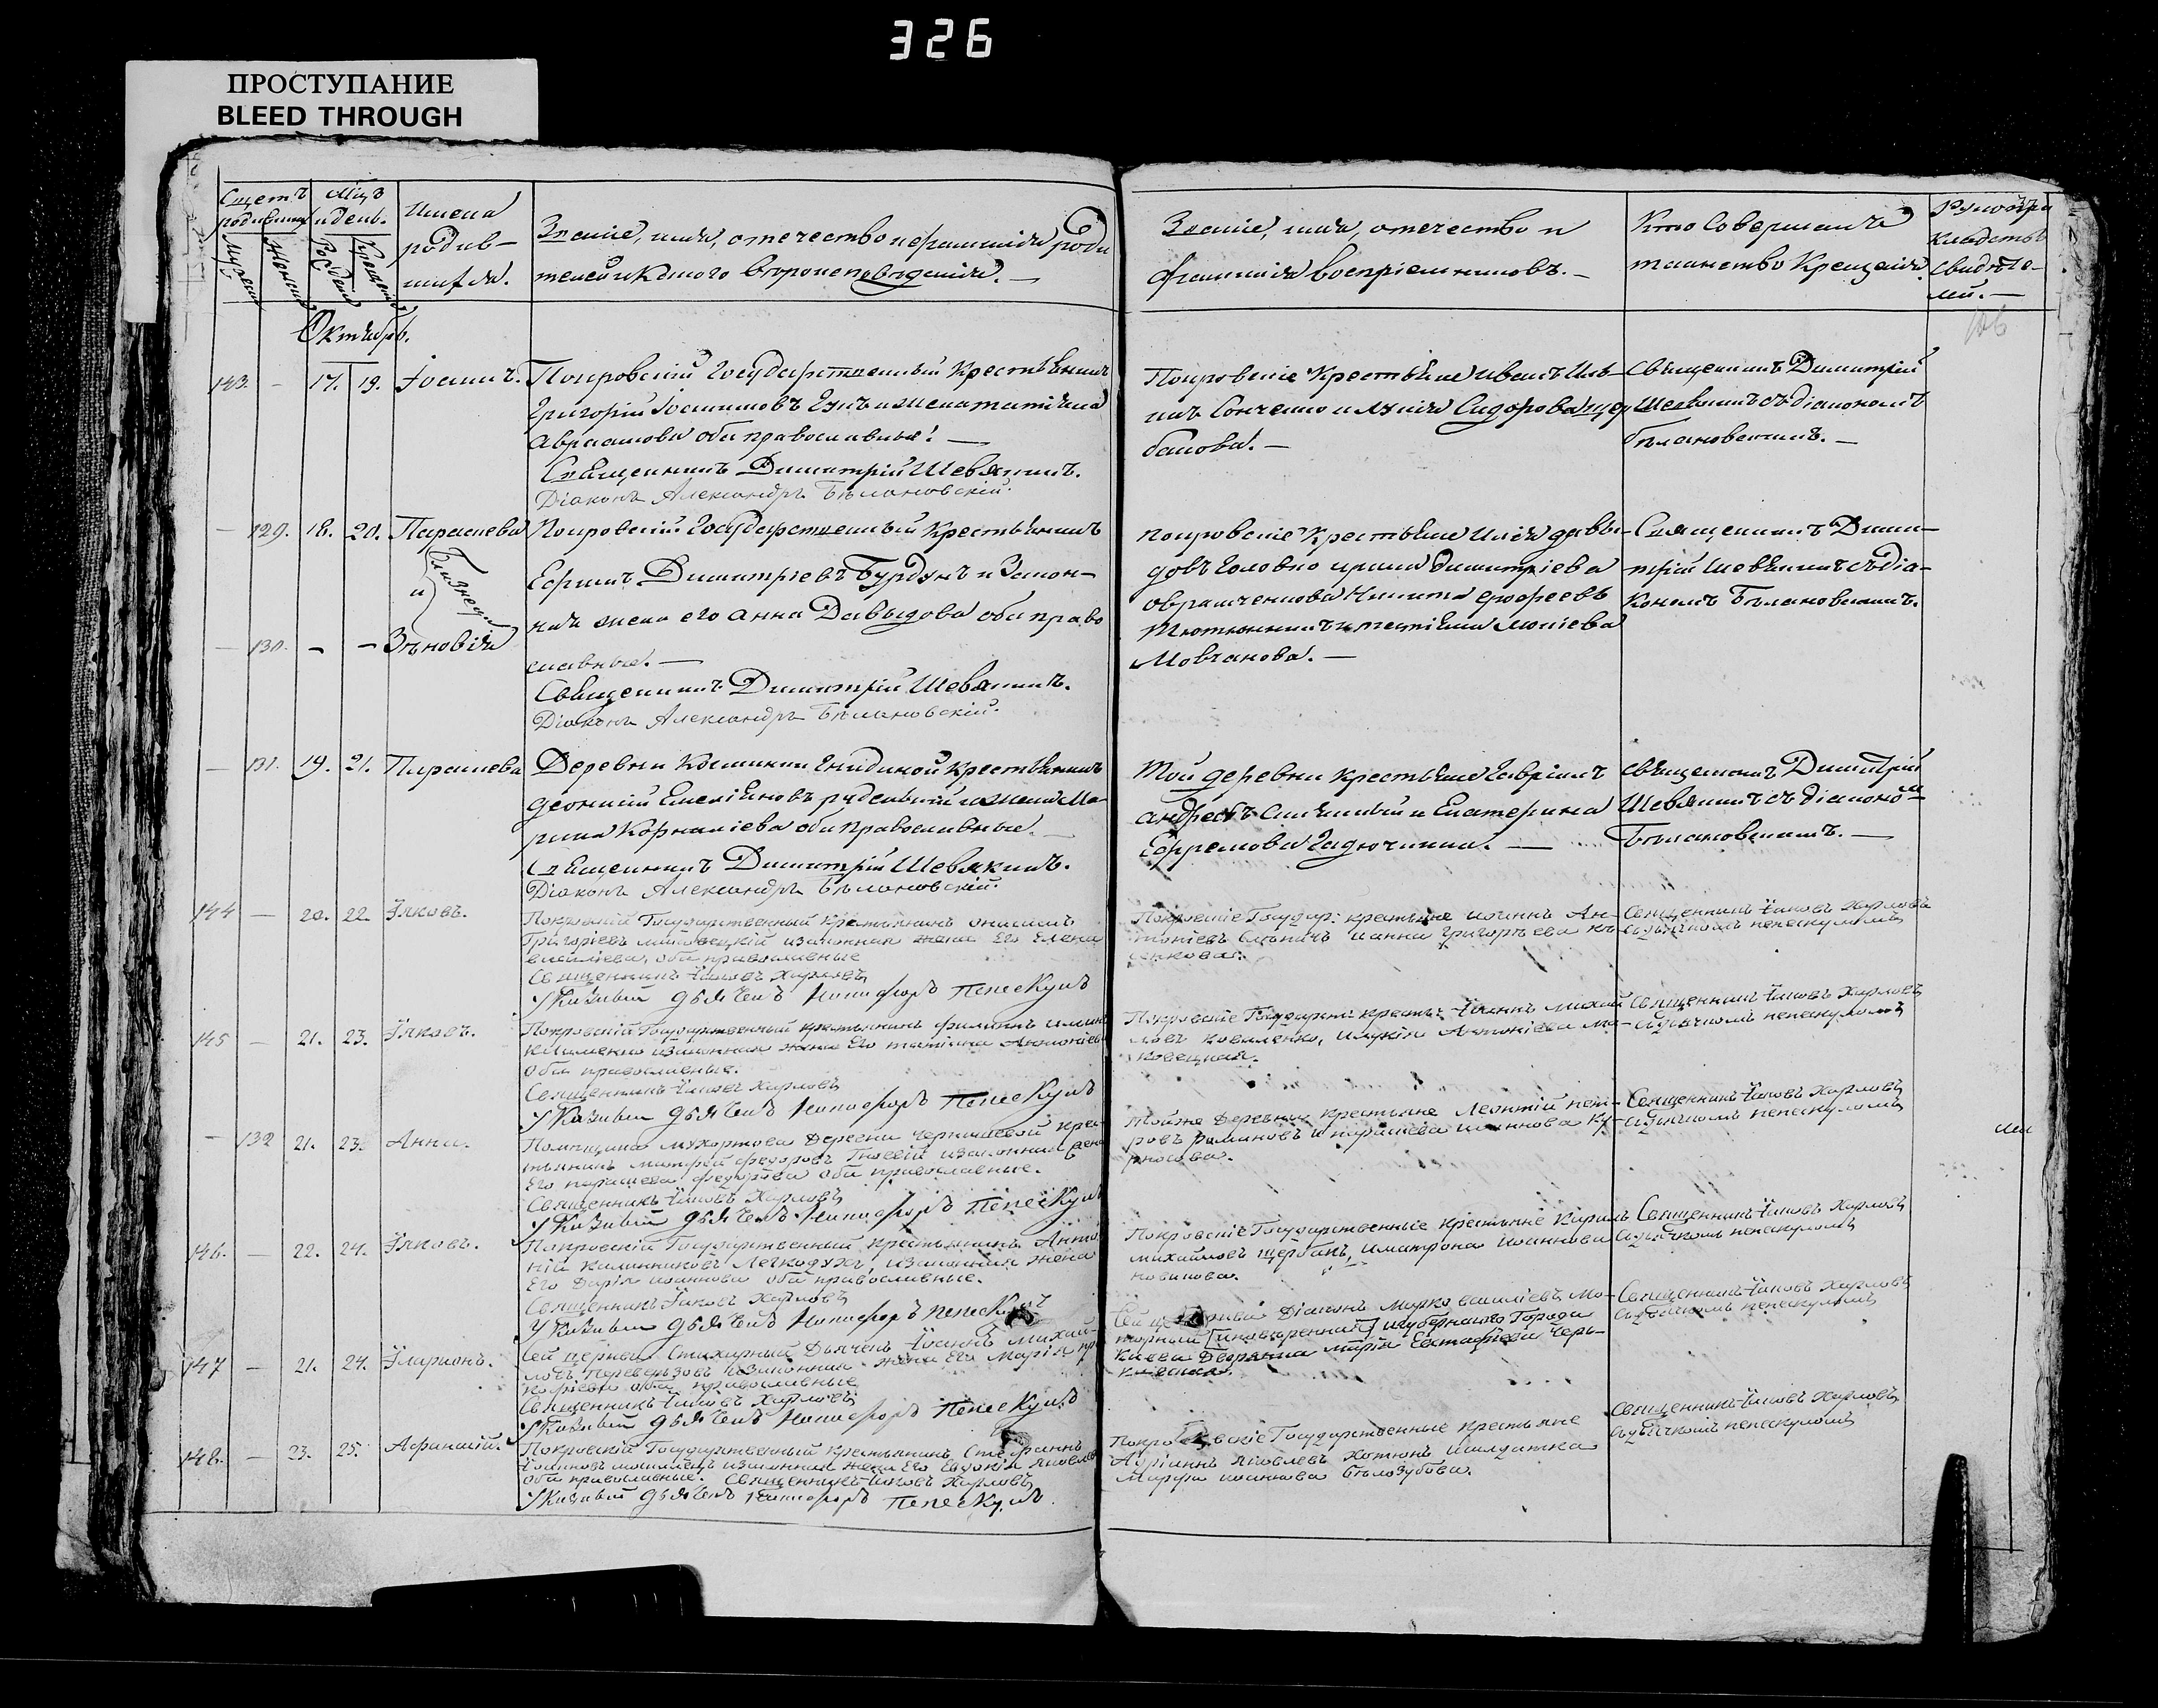 326
ПРОСТУПАНИЕ
BLEED THROUGH
Счетъ
родившихся
Мужеска
Женска
Мцъ
и день.
Рожденія
Крещенія
Имена
родив-
шихся.
Званіе, имя, отечество и фамилія роди
телей и какого вѣроисповѣданія. —
Званіе, имя, отечество и
фамилія воспріемниковъ. —
Кто совершалъ
таинство Крещенія
Рукопри
кладство
свидѣте-
лей. —
Октябрь.
143. — 17. 19. Іоаннъ.
Покровскій Государственный Крестьянинъ
Григорій Іоанновъ и жена татіана
Авраамова оба православные. —
Священникъ Димитрій Шевякинъ.
Діаконъ Александръ Бѣлановскій.
Покровскіе Крестьяне Иванъ
Сидорова щер
бакова. —
Священникъ Димитрій
Шевякинъ съ діакономъ
Бѣлановскимъ. —
— 129. 18. 20. Параскева
и
Близнецы
— 130. — — Зѣновія
Покровскій Государственный Крестьянинъ
Ефимъ Димитріевъ Бурдунъ и Закон-
ная жена его анна Давыдова оба право
славные. —
Священникъ Димитрій Шевякинъ.
Діаконъ Александръ Бѣлановскій.
Покровскіе Крестьяне Илія давы-
довъ Головко ирина димитріева
Никита ерофеевъ
Тютюнникъ и татіана
Мовчанова. —
Священникъ Дими-
трій Шевякинъ съ діа-
кономъ Бѣлановскимъ.
— 131. 19. 21. Параскева
Деревни Крестьянинъ
леонтій Емеліяновъ и жена Ма-
рина Корниліева оба православные. —
Священникъ Димитрій Шевякинъ.
Діаконъ Александръ Бѣлановскій.
Той деревни крестьяне Гавріилъ
андреевъ и Екатерина
Ефремова —
Священникъ Димитрій
Шевякинъ съ діаконом
Бѣлановскимъ. —
144 — 20. 22. Іяковъ.
Покровскій Государственный крестьянинъ онисимъ
Григоріевъ изаконная жена Его Елена
василіева, оба православные
Священникъ Іаковъ Харловъ
Указный дьячекъ Никифоръ Пепескулъ
Покровскіе Государ: крестьяне иоаннъ Ан-
тоніевъ ианна Григорьева
Священникъ Іаковъ Харловъ
съ дьячкомъ пепескуломъ
145 — 21. 23. Іяковъ.
Покровскій Государственный крестьянинъ филипъ
изаконная жена Его татіана Антоніева
оба православные.
Священникъ Іаковъ Харловъ
Указный дьячекъ Никифоръ Пепескулъ
Покровскіе Государ: кресть: Іоаннъ михай
ловъ коваленко, илукія Антоніева ма-
ковецкая.
Священникъ Іаковъ Харловъ
съ дьячкомъ пепескуломъ
— 132 21. 23. Анна.
Помѣщика мухортова Деревни Чернышевой крес
тьянинъ матфей федоровъ изаконная жена
Его параскева федорова оба православные.
Священникъ Іаковъ Харловъ
Указный дьячекъ Никифоръ Пепескулъ
Тойже Деревни крестьяне Леонтій пет-
ровъ романовъ ипараскева иоаннова
Священникъ Іаковъ Харловъ
съ дьячкомъ пепескуломъ
146. — 22. 24. Іяковъ.
Покровскій Государственный крестьянинъ Анто
ній калинниковъ Легкодухъ, изаконная жена
Его Дарія иоаннова оба православные.
Священникъ Іаковъ Харловъ
Указный дьячекъ Никифоръ Пепескулъ
Покровскіе Государственные крестьяне Кирилъ
михайловъ щербакъ, иматрона иоаннова
новикова.
Священникъ Іаковъ Харловъ
съ дьячкомъ пепескуломъ
147 — 21. 24. Іларионъ.
Сей церкви Стихарный Дьячекъ Іоаннъ михай-
ловъ изаконная жена Его Марія
оба православные
Священникъ Іаковъ Харловъ
Указный дьячекъ Никифоръ Пепескулъ
Сей церкви Діаконъ Марко василіевъ
Губернскаго Города
Киева Дворянка марія Евстафіева
Священникъ Іаковъ Харловъ
съ дьячкомъ пепескуломъ
148. — 23. 25. Афанасій.
Покровскій Государственный крестьянинъ Стефанъ
Іоанновъ изаконная жена Его Евдокія Яковлева
оба православные. Священникъ Іаковъ Харловъ
Указный дьячекъ Никифоръ Пепескулъ.
Покровскіе Государственные крестьяне
Андріанъ Яковлевъ исолдатка
Марфа иоаннова бѣлозубова.
Священникъ Іаковъ Харловъ
съ дьячкомъ пепескуломъ